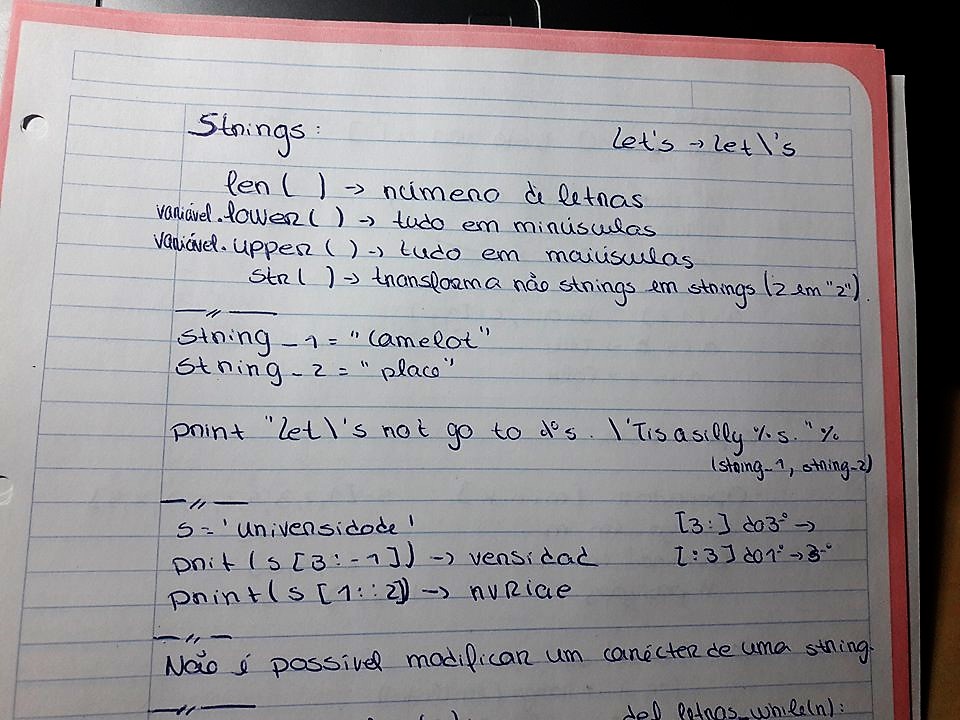 Strings:
let's → let\'s
len( ) → número de letras
variável.lower( ) → tudo em minúsculas
variável.upper( ) → tudo em maiúsculas
str( ) → transforma não strings em strings (2 em "2").
—//—
string_1 = "Camelot"
string_2 = "place"
print "let\'s not go to %s. \'Tis a silly %s." %
(string_1, string_2)
—//—
s = 'universidade'
[3:] do 3º →
prit (s [3:-1]) → versidad
[:3] do 1º → 3º
print(s [1::2]) → nvriae
—//—
Não é possível modificar um carácter de uma string.
—//—
def letras_while(n):